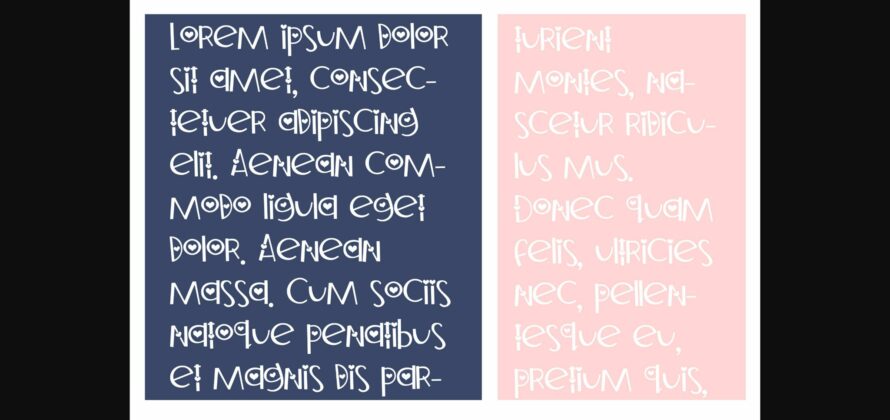 Lorem ipsum dolor
sit amet, consec-
tetuer adipiscing
elit. Aenean com-
modo ligula eget
dolor. Aenean
massa. Cum sociis
natoque penatibus
et magnis dis par-
turient
montes, na-
scetur ridicu-
lus mus.
Donec quam
felis, ultricies
nec, pellen-
tesque eu,
pretium quis,